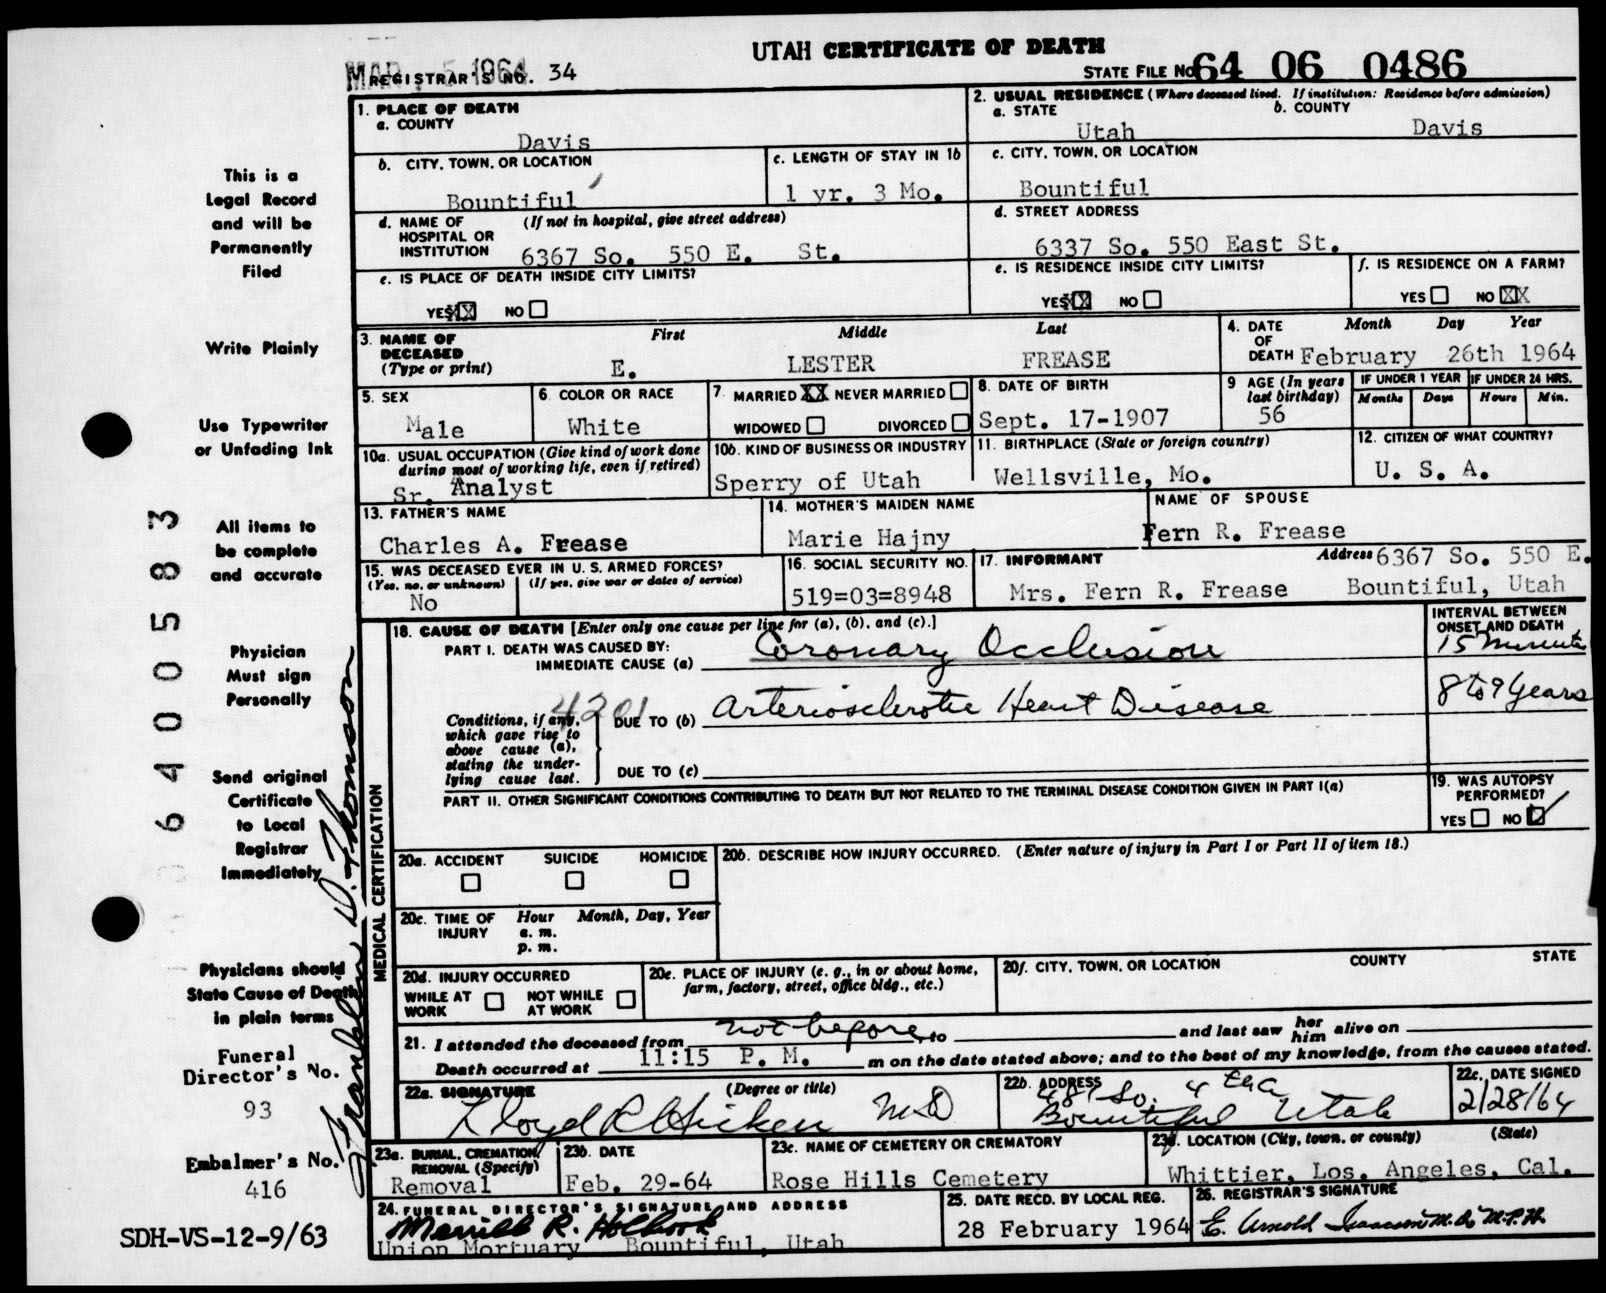 UTAH CERTIFICATE OF DEATH
MAR 5 1964
REGISTRAR'S NO. 34
STATE FILE No. 64 06 0486
1. PLACE OF DEATH
a. COUNTY
Davis
2. USUAL RESIDENCE (Where deceased lived. If institution: Residence before admission)
a. STATE b. COUNTY
Utah Davis
b. CITY, TOWN, OR LOCATION
Bountiful
c. LENGTH OF STAY IN 1b
1 yr. 3 Mo.
c. CITY, TOWN, OR LOCATION
Bountiful
d. NAME OF HOSPITAL OR INSTITUTION (If not in hospital, give street address)
6367 So. 550 E. St.
d. STREET ADDRESS
6337 So. 550 East St.
e. IS PLACE OF DEATH INSIDE CITY LIMITS?
YES XX NO
e. IS RESIDENCE INSIDE CITY LIMITS?
YES XX NO
f. IS RESIDENCE ON A FARM?
YES NO XX
3. NAME OF DECEASED (Type or print)
First Middle Last
E. LESTER FREASE
4. DATE OF DEATH
Month Day Year
February 26th 1964
5. SEX
Male
6. COLOR OR RACE
White
7. MARRIED XX NEVER MARRIED
WIDOWED DIVORCED
8. DATE OF BIRTH
Sept. 17-1907
9 AGE (In years last birthday)
56
IF UNDER 1 YEAR
Months Days
IF UNDER 24 HRS.
Hours Min.
10a. USUAL OCCUPATION (Give kind of work done during most of working life, even if retired)
Sr. Analyst
10b. KIND OF BUSINESS OR INDUSTRY
Sperry of Utah
11. BIRTHPLACE (State or foreign country)
Wellsville, Mo.
12. CITIZEN OF WHAT COUNTRY?
U. S. A.
13. FATHER'S NAME
Charles A. Frease
14. MOTHER'S MAIDEN NAME
Marie Hajny
NAME OF SPOUSE
Fern R. Frease
15. WAS DECEASED EVER IN U. S. ARMED FORCES?
(Yes, no, or unknown) (If yes, give war or dates of service)
No
16. SOCIAL SECURITY NO.
519=03=8948
17. INFORMANT Address 6367 So. 550 E.
Mrs. Fern R. Frease Bountiful, Utah
18. CAUSE OF DEATH [Enter only one cause per line for (a), (b), and (c).]
INTERVAL BETWEEN ONSET AND DEATH
PART I. DEATH WAS CAUSED BY:
IMMEDIATE CAUSE (a) Coronary Occlusion 15 Minutes
4201
Conditions, if any, which gave rise to above cause (a), stating the underlying cause last.
DUE TO (b) Arteriosclerotic Heart Disease 8 to 9 Years
DUE TO (c)
PART II. OTHER SIGNIFICANT CONDITIONS CONTRIBUTING TO DEATH BUT NOT RELATED TO THE TERMINAL DISEASE CONDITION GIVEN IN PART I(a)
19. WAS AUTOPSY PERFORMED?
YES NO
MEDICAL CERTIFICATION
20a. ACCIDENT SUICIDE HOMICIDE
20b. DESCRIBE HOW INJURY OCCURRED. (Enter nature of injury in Part I or Part II of item 18.)
20c. TIME OF INJURY Hour Month, Day, Year
a. m.
p. m.
20d. INJURY OCCURRED
WHILE AT WORK NOT WHILE AT WORK
20e. PLACE OF INJURY (e. g., in or about home, farm, factory, street, office bldg., etc.)
20f. CITY, TOWN, OR LOCATION COUNTY STATE
21. I attended the deceased from not before, to and last saw her him alive on
Death occurred at 11:15 P. M. m on the date stated above; and to the best of my knowledge, from the causes stated.
22a. SIGNATURE (Degree or title)
Lloyd R Hicken MD
22b. ADDRESS
481 So. 4th
Bountiful Utah
22c. DATE SIGNED
2/28/64
23a. BURIAL, CREMATION, REMOVAL (Specify)
Removal
23b. DATE
Feb. 29-64
23c. NAME OF CEMETERY OR CREMATORY
Rose Hills Cemetery
23d. LOCATION (City, town, or county) (State)
Whittier, Los. Angeles, Cal.
24. FUNERAL DIRECTOR'S SIGNATURE AND ADDRESS
Merrill R. Holbrook
Union Mortuary Bountiful, Utah
25. DATE RECD. BY LOCAL REG.
28 February 1964
26. REGISTRAR'S SIGNATURE
E. Arnold Isaacson M.D. M.P.H.
This is a
Legal Record
and will be
Permanently
Filed
Write Plainly
Use Typewriter
or Unfading Ink
All items to
be complete
and accurate
Physician
Must sign
Personally
Send original
Certificate
to Local
Registrar
Immediately
Physicians should
State Cause of Death
in plain terms
Funeral
Director's No.
93
Embalmer's No.
416
SDH-VS-12-9/63
Franklin D. Thomson
6400583